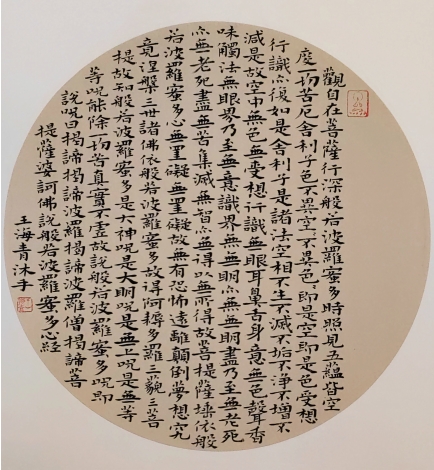 觀自在菩薩行深般若波羅蜜多時照見五蘊皆空
度一切苦厄舍利子色不異空空不異色色即是空空即是色受想
行識亦復如是舍利子是諸法空相不生不滅不垢不淨不增不
減是故空中無色無受想行識無眼耳鼻舌身意無色聲香
味觸法無眼界乃至無意識界無無明亦無無明盡乃至無老死
亦無老死盡無苦集滅道無智亦無得以無所得故菩提薩埵依般
若波羅蜜多故心無罣礙無罣礙故無有恐怖遠離顛倒夢想究
竟涅槃三世諸佛依般若波羅蜜多故得阿耨多羅三藐三菩
提故知般若波羅蜜多是大神咒是大明咒是無上咒是無等
等咒能除一切苦真實不虛故說般若波羅蜜多咒即
說咒曰揭諦揭諦波羅揭諦波羅僧揭諦菩
提薩婆訶佛說般若波羅蜜多心經
王海青沐手